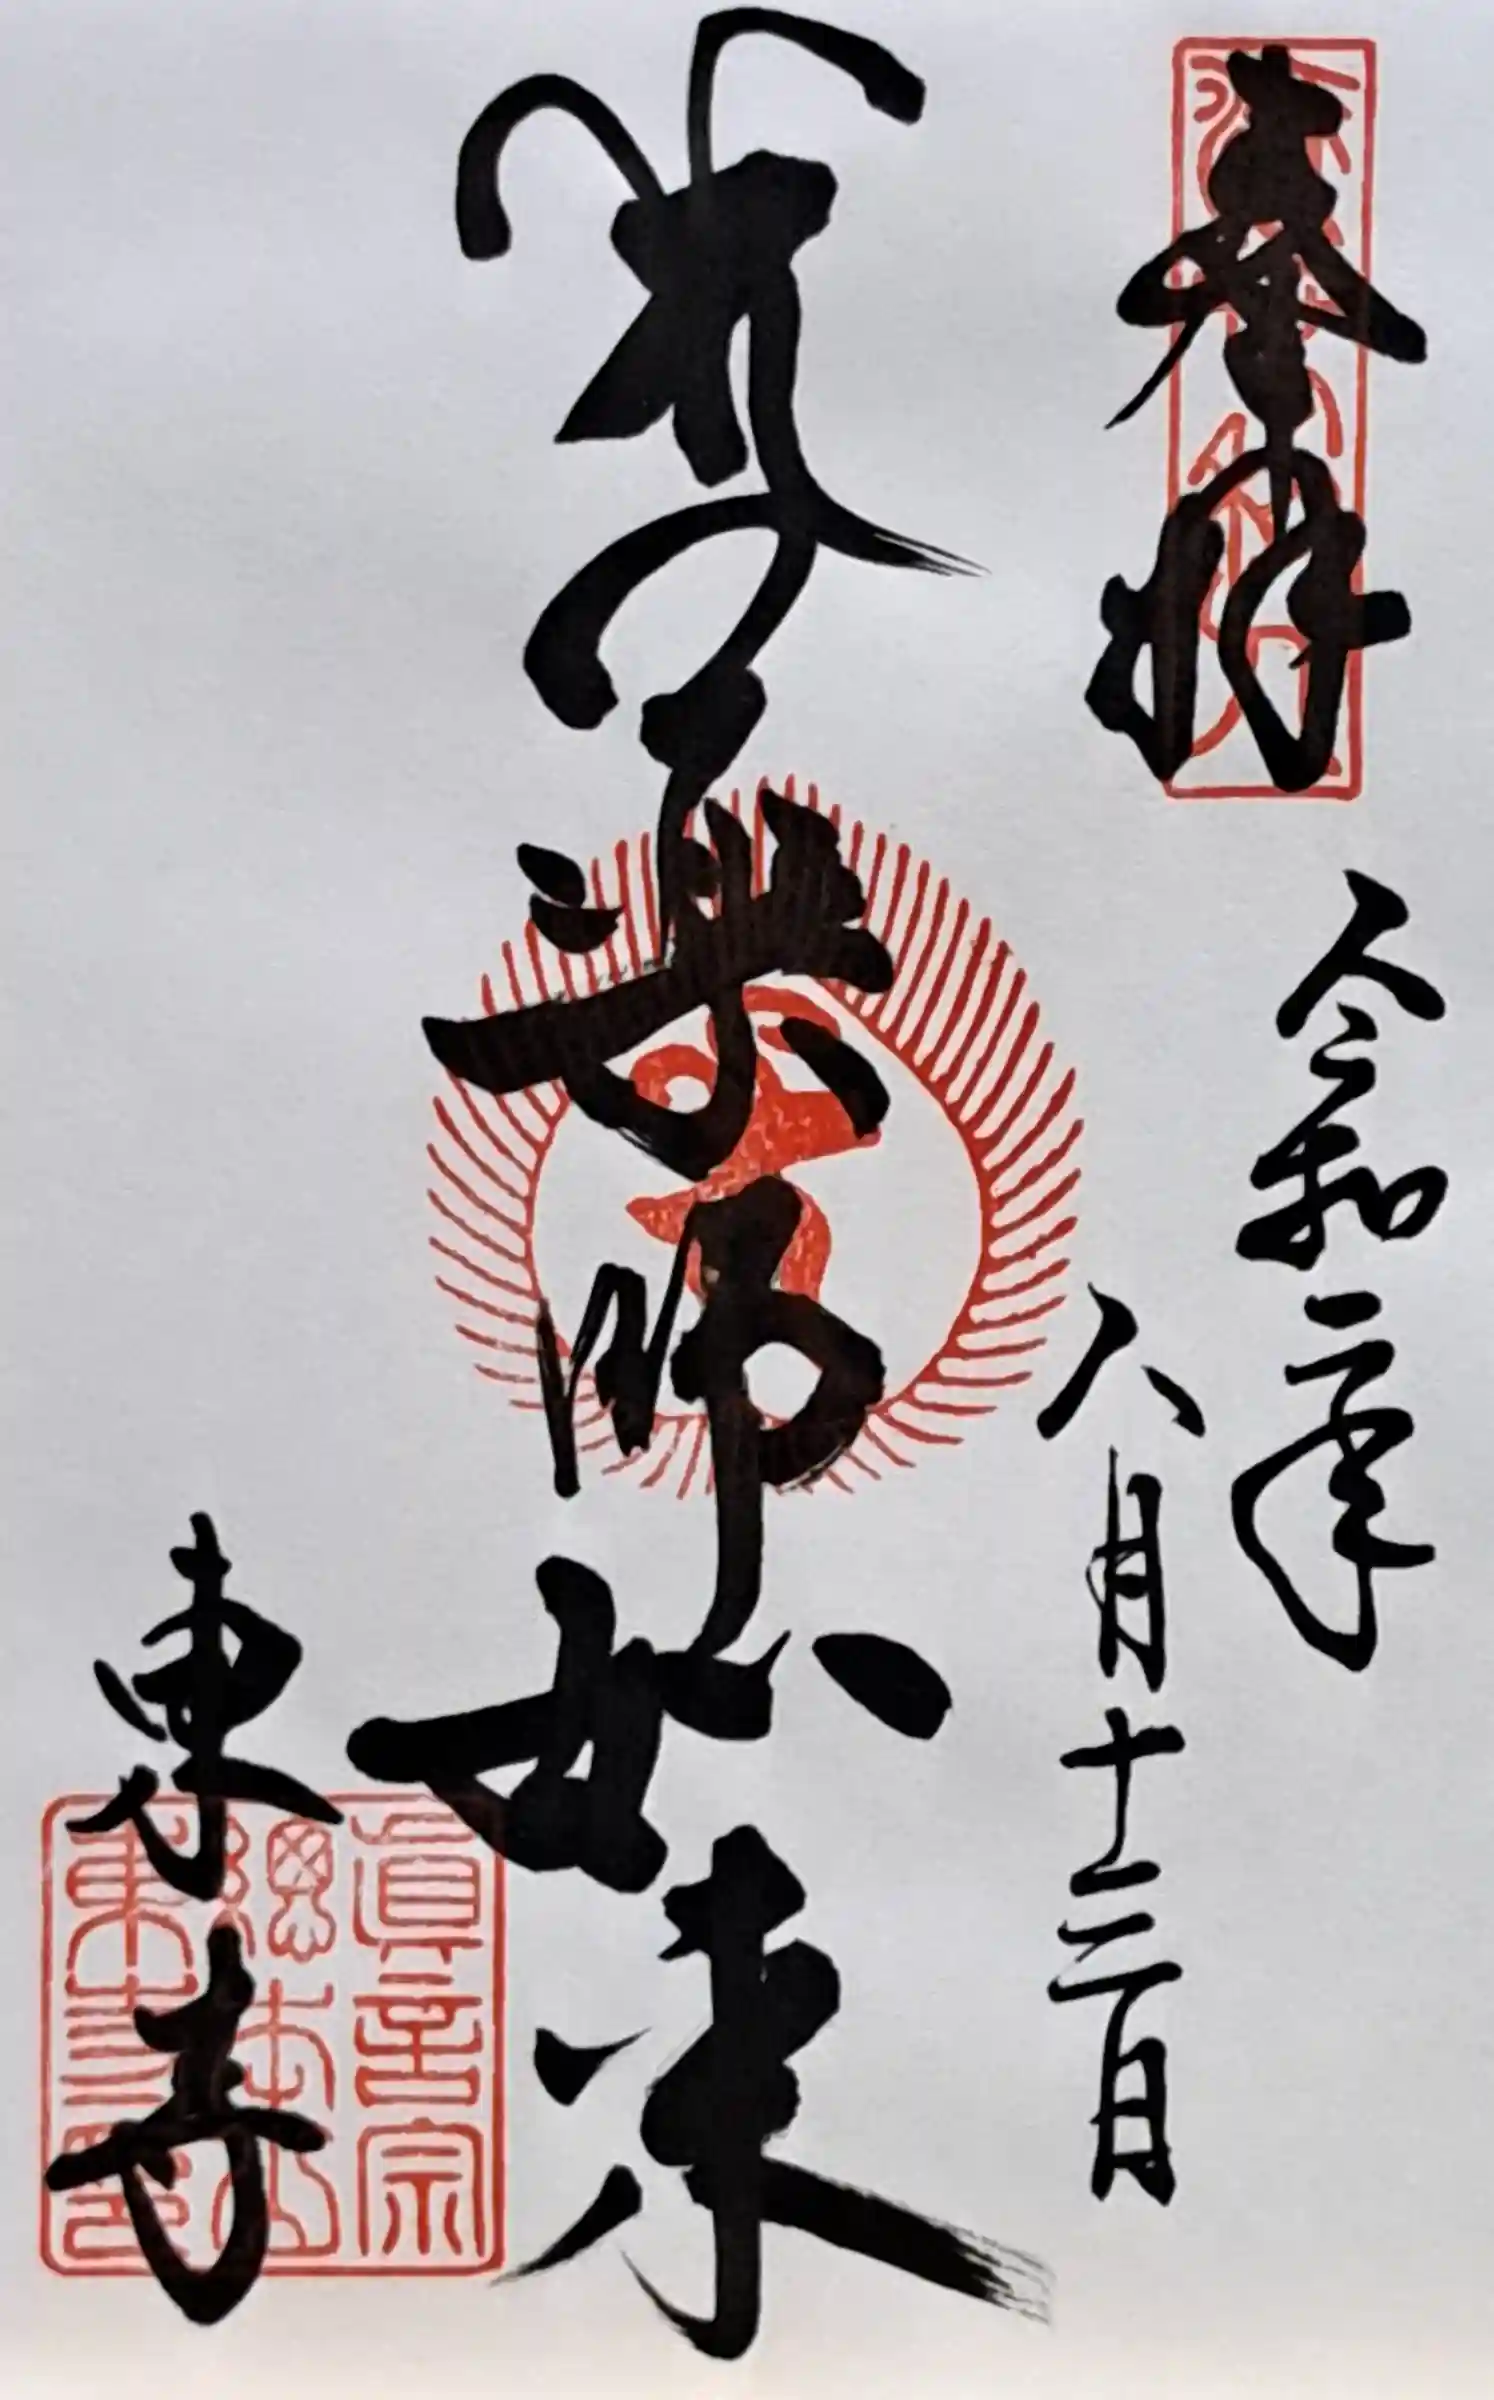 奉拝
令和二年
八月十三日
薬師如来
東寺
眞言宗
總本山
東寺印